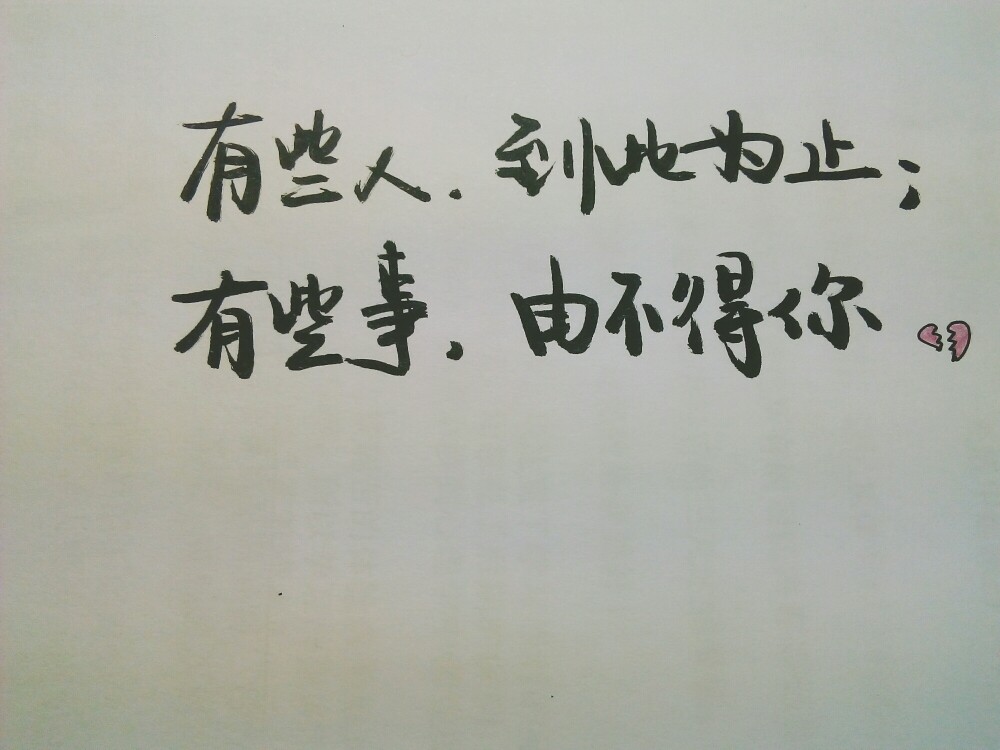 有些人，到此为止；
有些事，由不得你